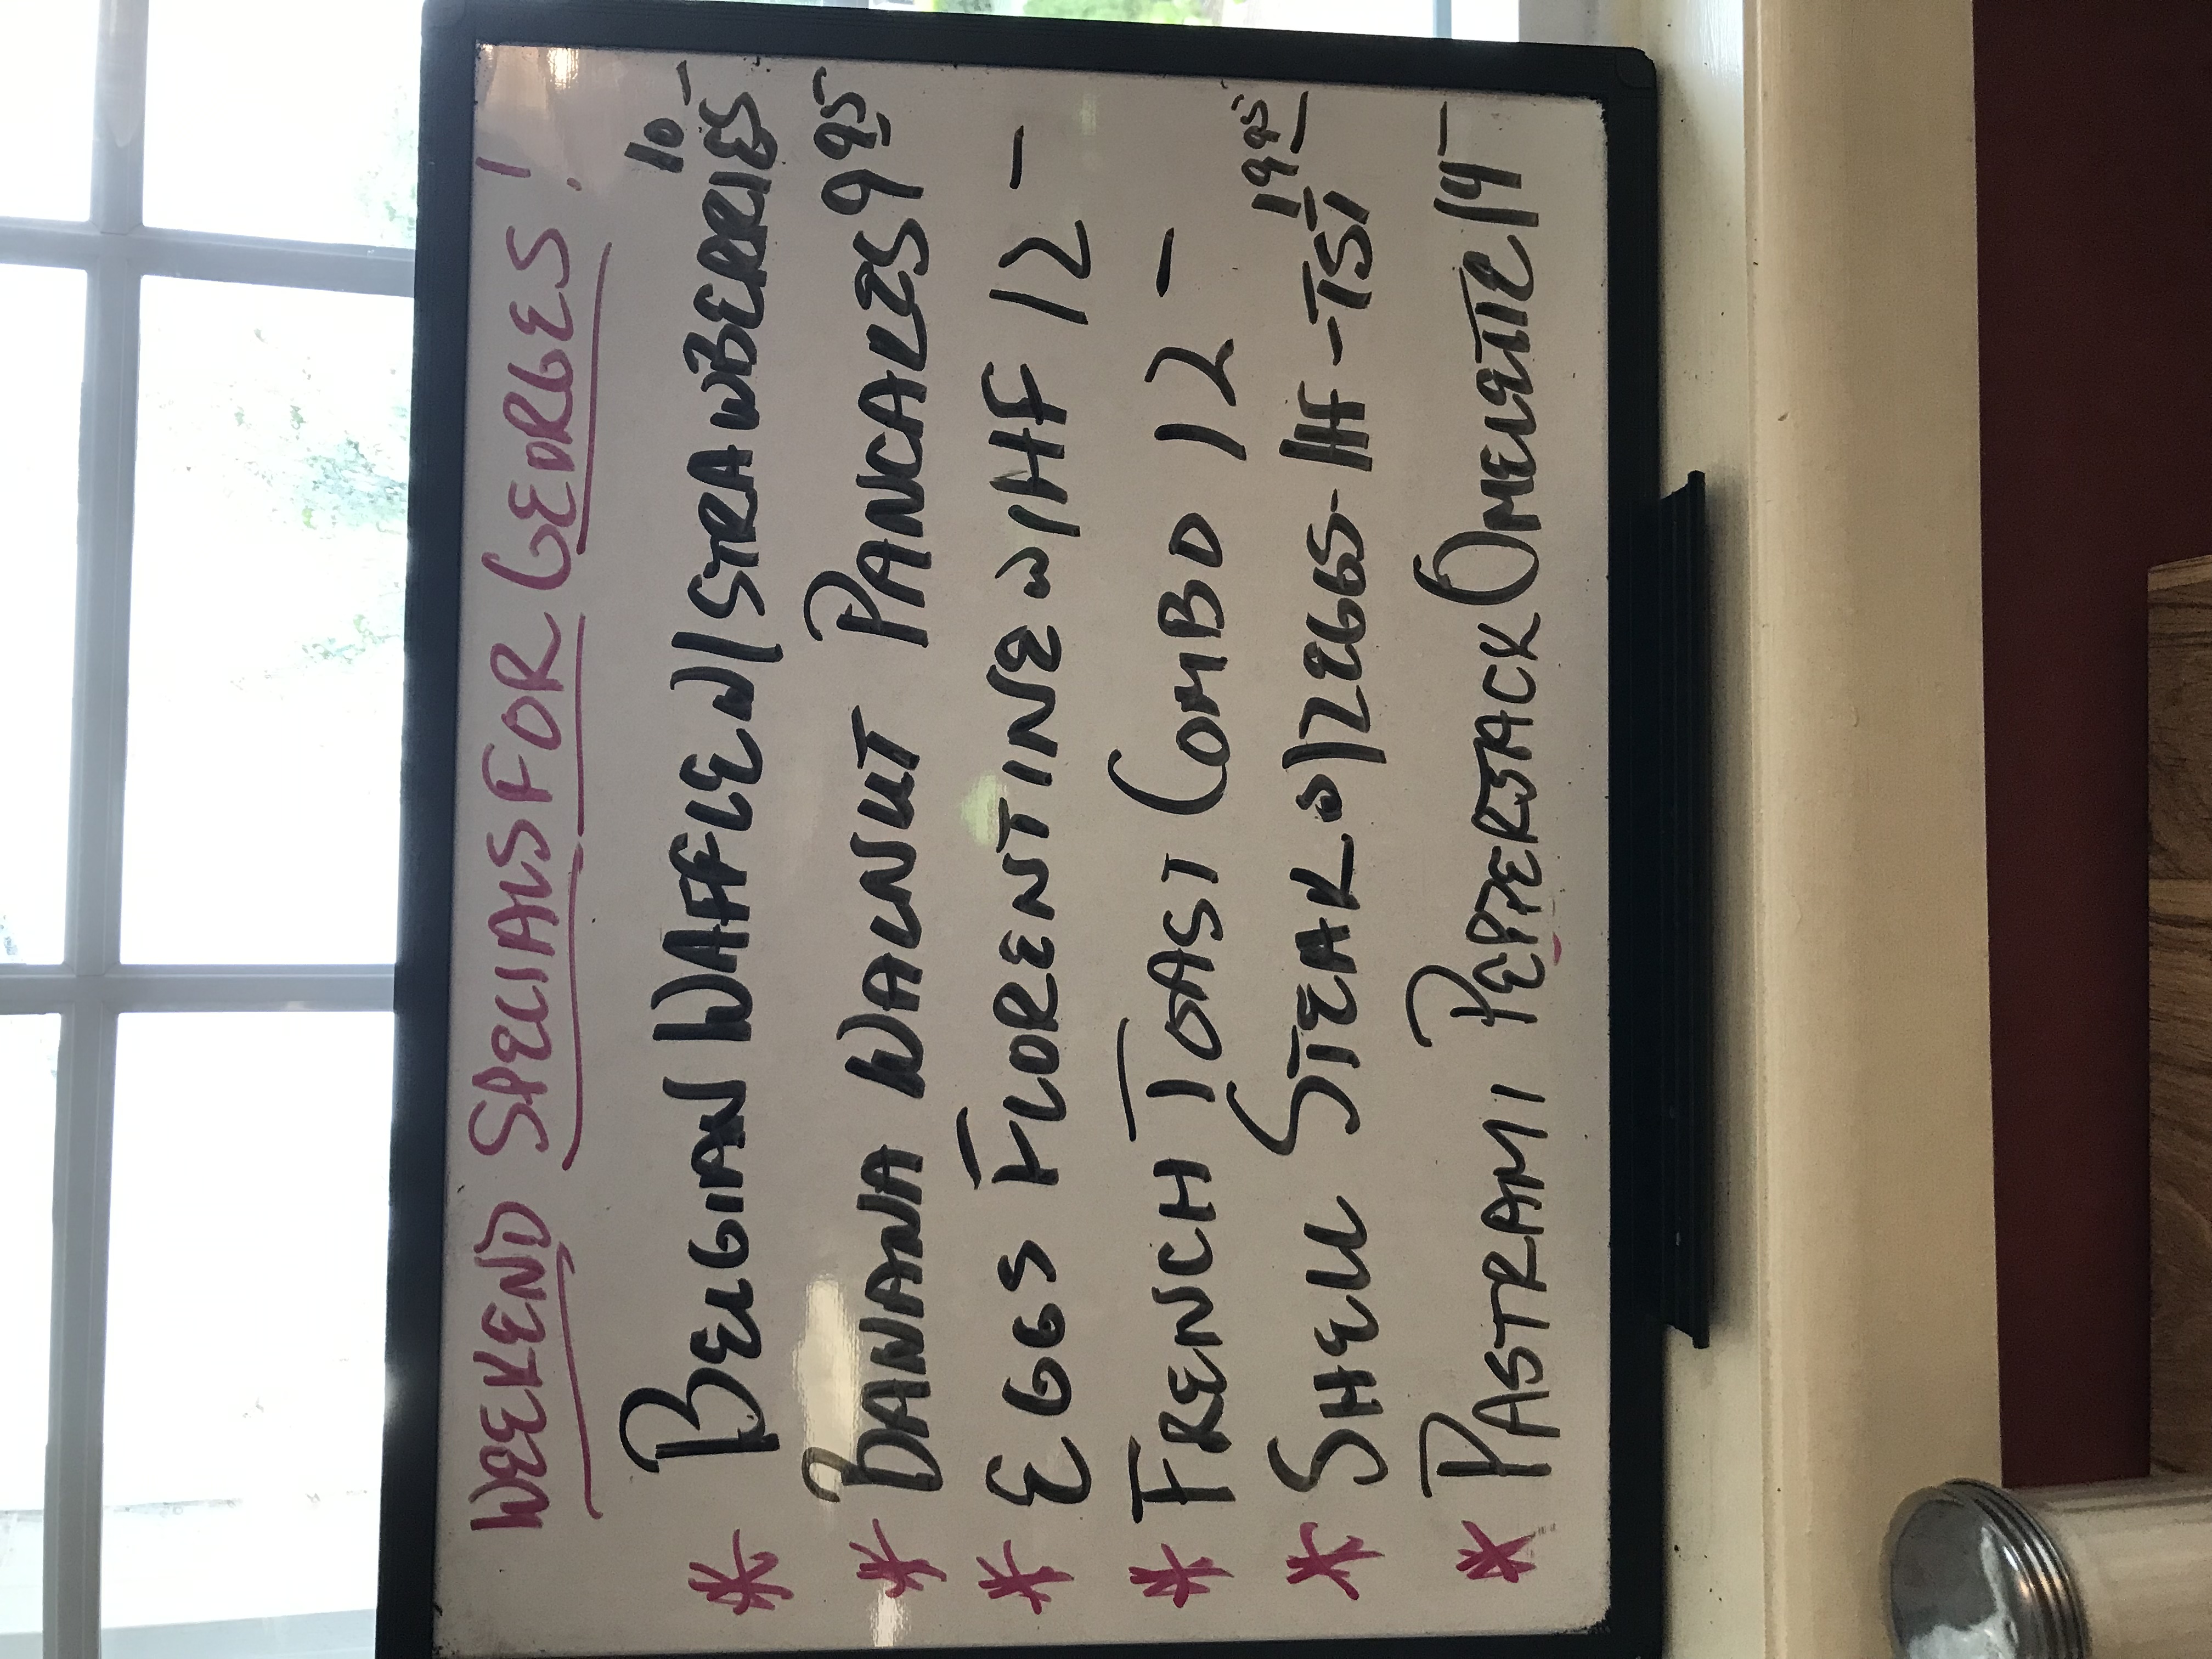 WEEKEND SPECIALS FOR GEORGES!
* BELGIAN WAFFLE W/STRAWBERRIES 10-
* BANANA WALNUT PANCAKES 9 95
* EGGS FLORENTINE W/HF 12-
* FRENCH TOAST COMBO 12-
* SHELL STEAK W/2EGGS-HF-TST 19 95
* PASTRAMI PEPPERJACK OMELETTE 14-